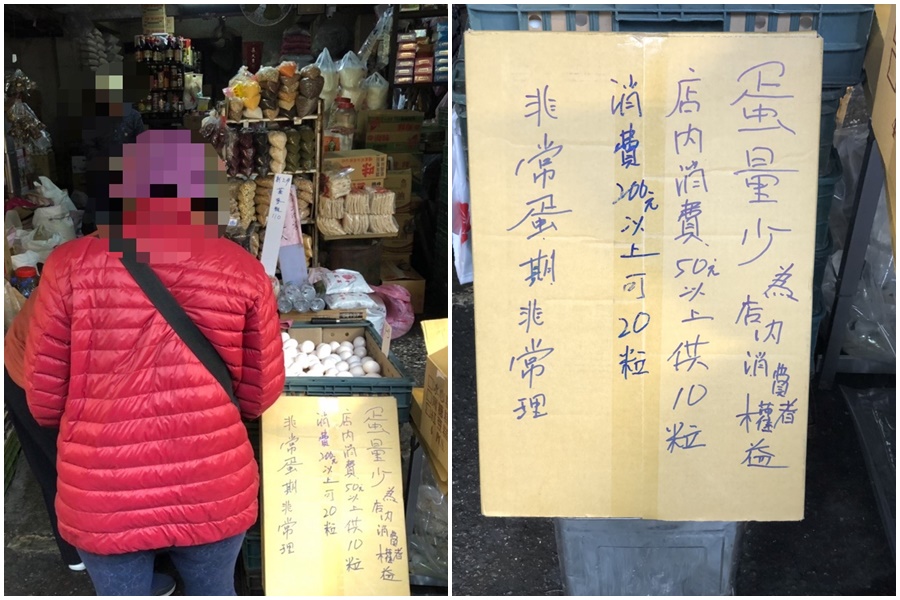 蛋量少
為店內消費者權益
店內消費50元以上供10粒
消費200元以上可20粒
非常蛋期非常理
蛋量少
為店內消費者權益
店內消費50元以上供10粒
消費200元以上可20粒
非常蛋期非常理